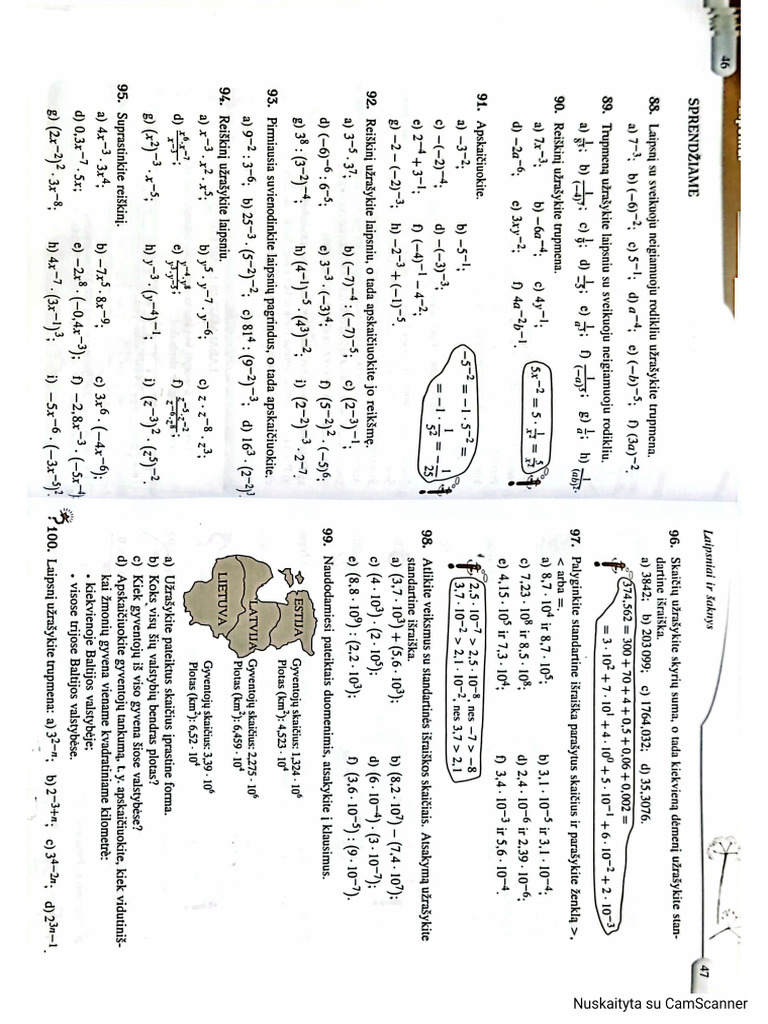 46
SPRENDŽIAME
88. Laipsnį su sveikuoju neigiamuoju rodikliu užrašykite trupmena.
a) 7⁻³; b) (−6)⁻²; c) 5⁻¹; d) a⁻⁴; e) (−b)⁻⁵; f) (3a)⁻².
89. Trupmeną užrašykite laipsniu su sveikuoju neigiamuoju rodikliu.
90. Reiškinį užrašykite trupmena.
a) 7x⁻³; b) −6a⁻⁴; c) 4y⁻¹;
d) −2a⁻⁶; e) 3xy⁻²; f) 4a⁻²b⁻¹.
5x⁻² = 5 · 1/x² = 5/x²
91. Apskaičiuokite.
a) −3⁻²; b) −5⁻¹;
c) −(−2)⁻⁴; d) −(−3)⁻³;
e) 2⁻⁴ + 3⁻¹; f) (−4)⁻¹ − 4⁻²;
g) −2 − (−2)⁻³; h) −2⁻³ + (−1)⁻⁵.
−5⁻² = −1 · 5⁻² =
= −1 · 1/5² = −1/25
92. Reiškinį užrašykite laipsniu, o tada apskaičiuokite jo reikšmę.
a) 3⁻⁵ · 3⁷; b) (−7)⁻⁴ : (−7)⁻⁵; c) (2⁻³)⁻¹;
d) (−6)⁻⁶ : 6⁻⁵; e) 3⁻³ · (−3)⁴; f) (5⁻²)² · (−5)⁶;
g) 3⁸ : (3⁻²)⁻⁴; h) (4⁻¹)⁻⁵ · (4³)⁻²; i) (2⁻²)⁻³ · 2⁻⁷.
93. Pirmiausia suvienodinkite laipsnių pagrindus, o tada apskaičiuokite.
a) 9⁻² : 3⁻⁶; b) 25⁻³ · (5⁻²)⁻²; c) 81⁴ : (9⁻²)⁻³; d) 16³ · (2⁻²)³
94. Reiškinį užrašykite laipsniu.
a) x⁻³ · x² · x⁵; b) y⁵ · y⁻⁷ · y⁻⁶; c) z · z⁻⁸ · z³;
g) (x²)⁻³ · x⁻⁵; h) y⁻³ · (y⁻⁴)⁻¹; i) (z⁻³)² · (z⁵)⁻²
95. Suprastinkite reiškinį.
a) 4x⁻³ · 3x⁴; b) −7x⁵ · 8x⁻⁹; c) 3x⁶ · (−4x⁻⁶);
d) 0,3x⁻⁷ · 5x; e) −2x⁸ · (−0,4x⁻³); f) −2,8x⁻³ · (−5x⁻⁴
g) (2x⁻²)² · 3x⁻⁸; h) 4x⁻⁷ · (3x⁻¹)³; i) −5x⁻⁶ · (−3x⁻⁵)²
Laipsniai ir šaknys
47
96. Skaičių užrašykite skyrių suma, o tada kiekvieną dėmenį užrašykite stan-
dartine išraiška.
a) 3842; b) 203 099; c) 1764,032; d) 35,3076.
374,562 = 300 + 70 + 4 + 0,5 + 0,06 + 0,002 =
= 3 · 10² + 7 · 10¹ + 4 · 10⁰ + 5 · 10⁻¹ + 6 · 10⁻² + 2 · 10⁻³
97. Palyginkite standartine išraiška parašytus skaičius ir parašykite ženklą >,
< arba =.
a) 8,7 · 10⁴ ir 8,7 · 10⁵; b) 3,1 · 10⁻⁵ ir 3,1 · 10⁻⁴;
c) 7,23 · 10⁸ ir 8,5 · 10⁸; d) 2,4 · 10⁻⁶ ir 2,39 · 10⁻⁶;
e) 4,15 · 10⁵ ir 7,3 · 10⁴; f) 3,4 · 10⁻³ ir 5,6 · 10⁻⁴.
2,5 · 10⁻⁷ > 2,5 · 10⁻⁸, nes −7 > −8
3,7 · 10⁻² > 2,1 · 10⁻², nes 3,7 > 2,1
98. Atlikite veiksmus su standartinės išraiškos skaičiais. Atsakymą užrašykite
standartine išraiška.
a) (3,7 · 10³) + (5,6 · 10³); b) (8,2 · 10⁷) − (7,4 · 10⁷);
c) (4 · 10³) · (2 · 10⁵); d) (6 · 10⁻⁴) · (3 · 10⁻⁷);
e) (8,8 · 10⁹) : (2,2 · 10³); f) (3,6 · 10⁻⁵) : (9 · 10⁻⁷).
99. Naudodamiesi pateiktais duomenimis, atsakykite į klausimus.
ESTIJA
Gyventojų skaičius: 1,324 · 10⁶
Plotas (km²): 4,523 · 10⁴
LATVIJA
Gyventojų skaičius: 2,275 · 10⁶
Plotas (km²): 6,459 · 10⁴
LIETUVA
Gyventojų skaičius: 3,39 · 10⁶
Plotas (km²): 6,52 · 10⁴
a) Užrašykite pateiktus skaičius įprastine forma.
b) Koks visų šių valstybių bendras plotas?
c) Kiek gyventojų iš viso gyvena šiose valstybėse?
d) Apskaičiuokite gyventojų tankumą, t. y. apskaičiuokite, kiek vidutiniš-
kai žmonių gyvena viename kvadratiniame kilometre:
• kiekvienoje Baltijos valstybėje;
• visose trijose Baltijos valstybėse.
? 100. Laipsnį užrašykite trupmena: a) 3²⁻ⁿ; b) 2⁻³⁺ⁿ; c) 3⁴⁻²ⁿ; d) 2³ⁿ⁻¹.
Nuskaityta su CamScanner